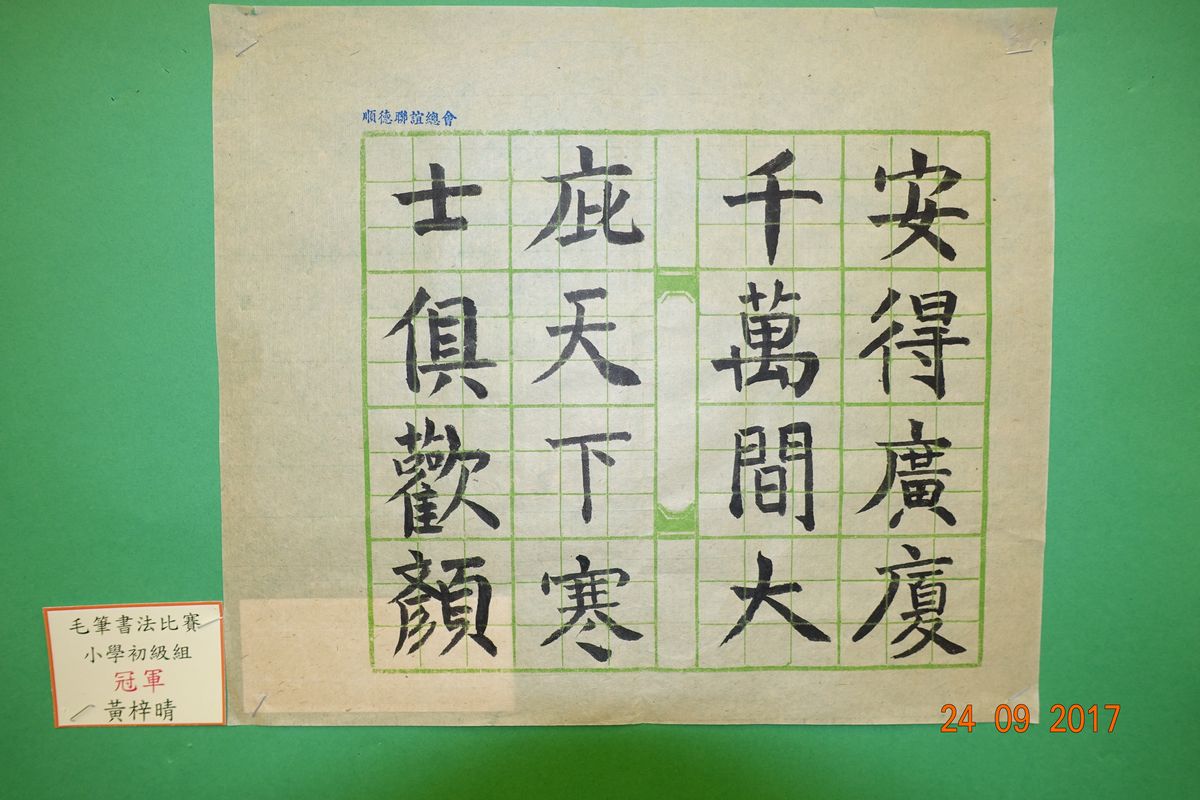 順德聯誼總會
安得廣廈
千萬間大
庇天下寒
士俱歡顏
毛筆書法比賽
小學初級組
冠軍
黃梓晴
24 09 2017